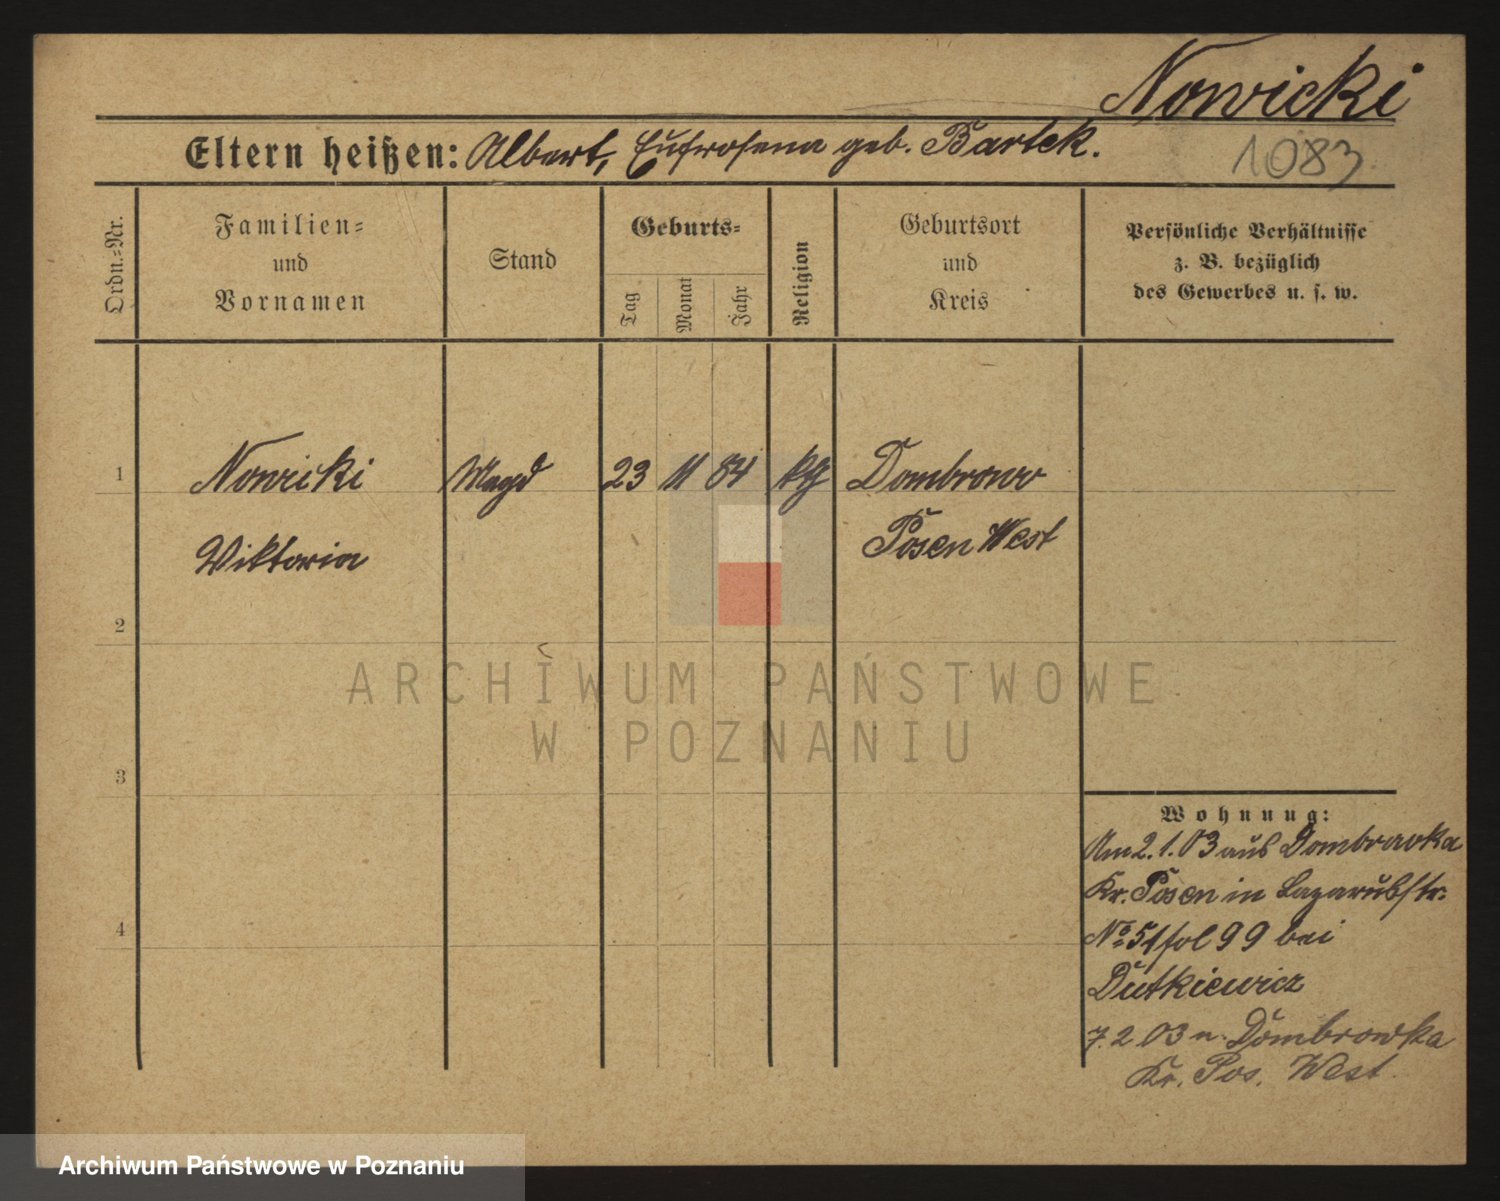 Nowicki
Eltern heißen: Albert, Eufrosena geb. Bartek.
1083
Ordn.-Nr.
Familien-
und
Vornamen
Stand
Geburts-
Tag
Monat
Jahr
Religion
Geburtsort
und
Kreis
Persönliche Verhältnisse
z. B. bezüglich
des Gewerbes u. s. w.
1 Nowicki Magd 23 11 84 kg Dombrowo
Posen West
Viktoria
2
ARCHIWUM PAŃSTWOWE
W POZNANIU
3
Wohnung:
Am 2.1.03 aus Dombrowka
Kr. Posen in Lazarusstr.
No 51 fol 99 bei
Dutkiewicz
7.2 03 n. Dombrowka
Kr. Pos. West.
4
Archiwum Państwowe w Poznaniu